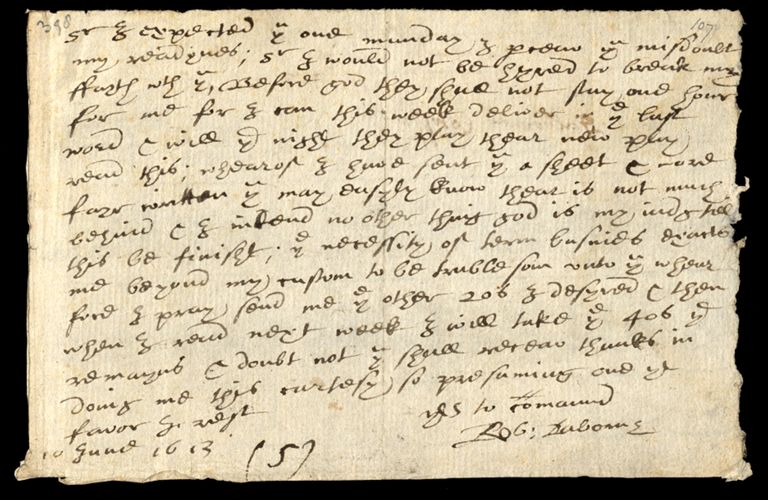 398
107
Sr I expected yu one munday I pceav yu misdoubt
my readynes; Sr I would not be hyred to break my
ffayth wth yu, Before god they shall not stay one hour
for me for I can this week deliver in ye last
word & will yt night they play thear new play
read this; whearof I have sent yu a sheet & more
fayr written yu may easyly know thear is not much
behind & I intend no other thing god is my judg till
this be finisht; ye necessity of term busines exacts
me beyond my custom to be trublesom unto yu whear
fore I pray send me ye other 20s I desyred & then
when I read next week I will take ye 40s yt
remayns & doubt not yu shall receav thanks in
doing me this curtesy, so presuming one yr
favor I rest
yrs to comaund
Rob: Daborne
10 June 1613
(5)